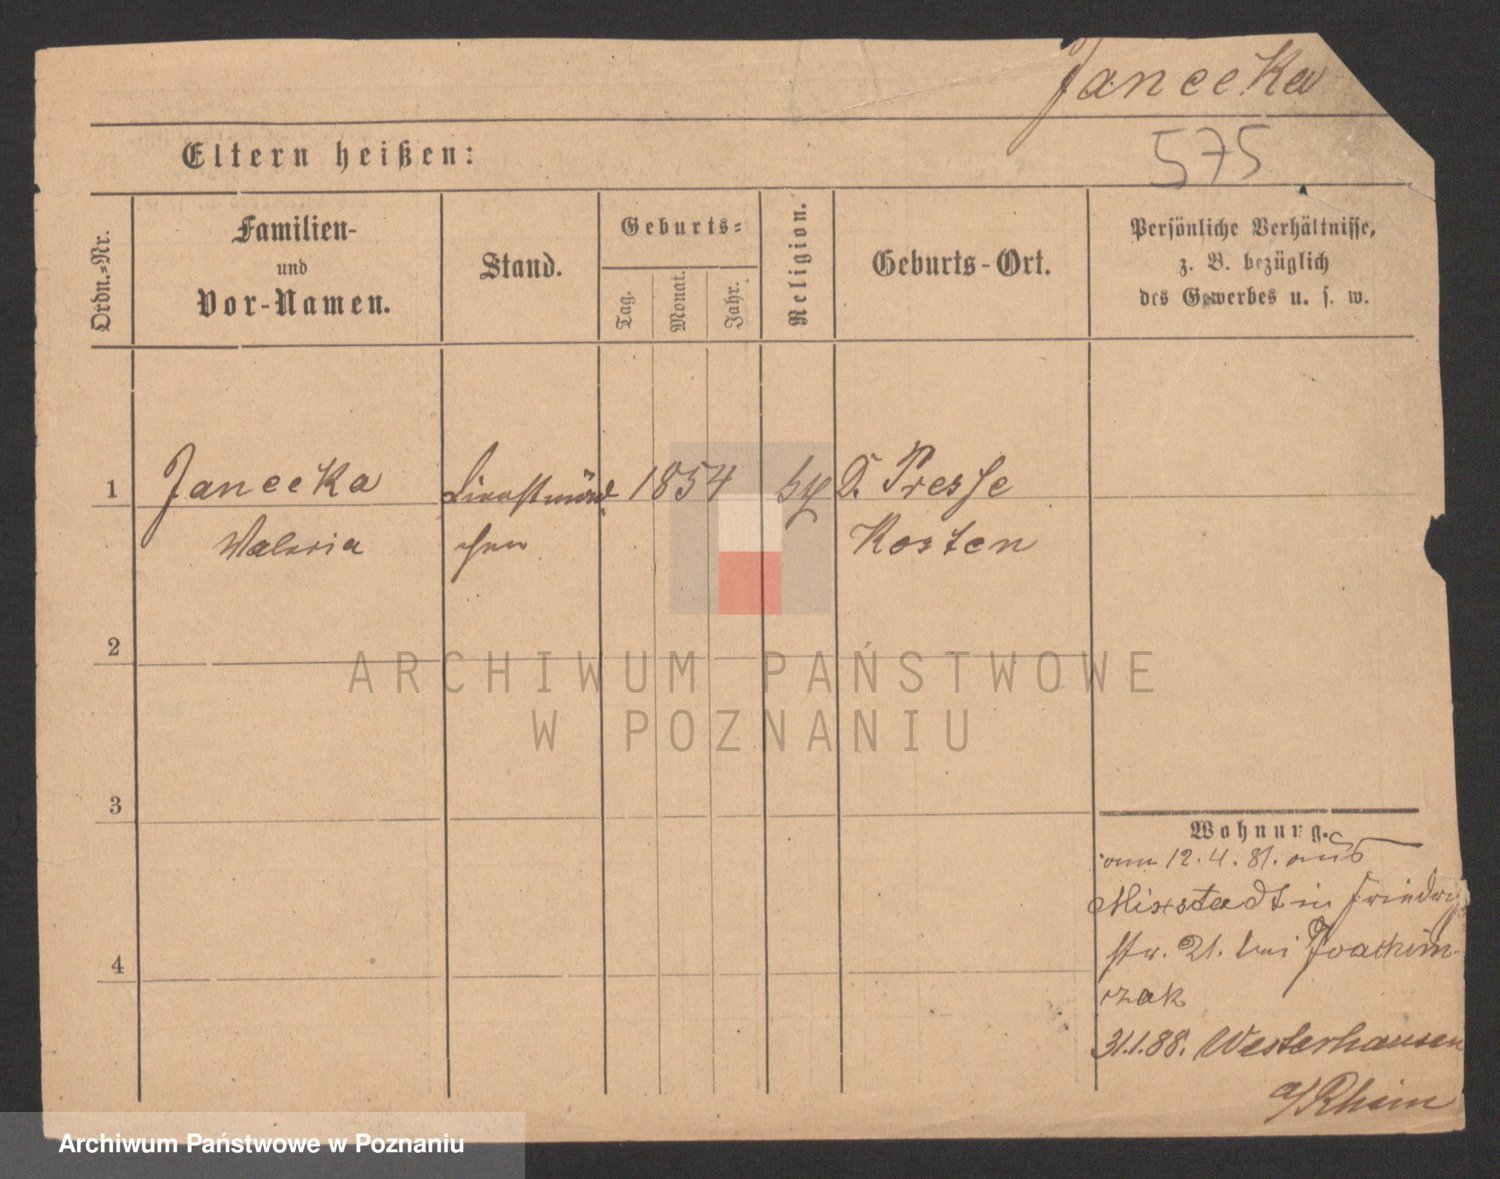 Janecka
575
Eltern heißen:
Ordn.=Nr.
Familien-
und
Vor-Namen.
Stand.
Geburts=
Tag.
Monat.
Jahr.
Religion.
Geburts-Ort.
Persönliche Verhältnisse,
z. B. bezüglich
des Gewerbes u. s. w.
1
Janecka
Dienstmäd
1854
D. Presse
Waleria
chen
Kosten
2
ARCHIWUM PAŃSTWOWE
W POZNANIU
3
Wohnung.
vom 12. 4. 81. aus
Mixstadt in Friedrich
str. 21. bei Joachim-
czak
4
31.1.88. Westerhausen
a/Rhein
Archiwum Państwowe w Poznaniu